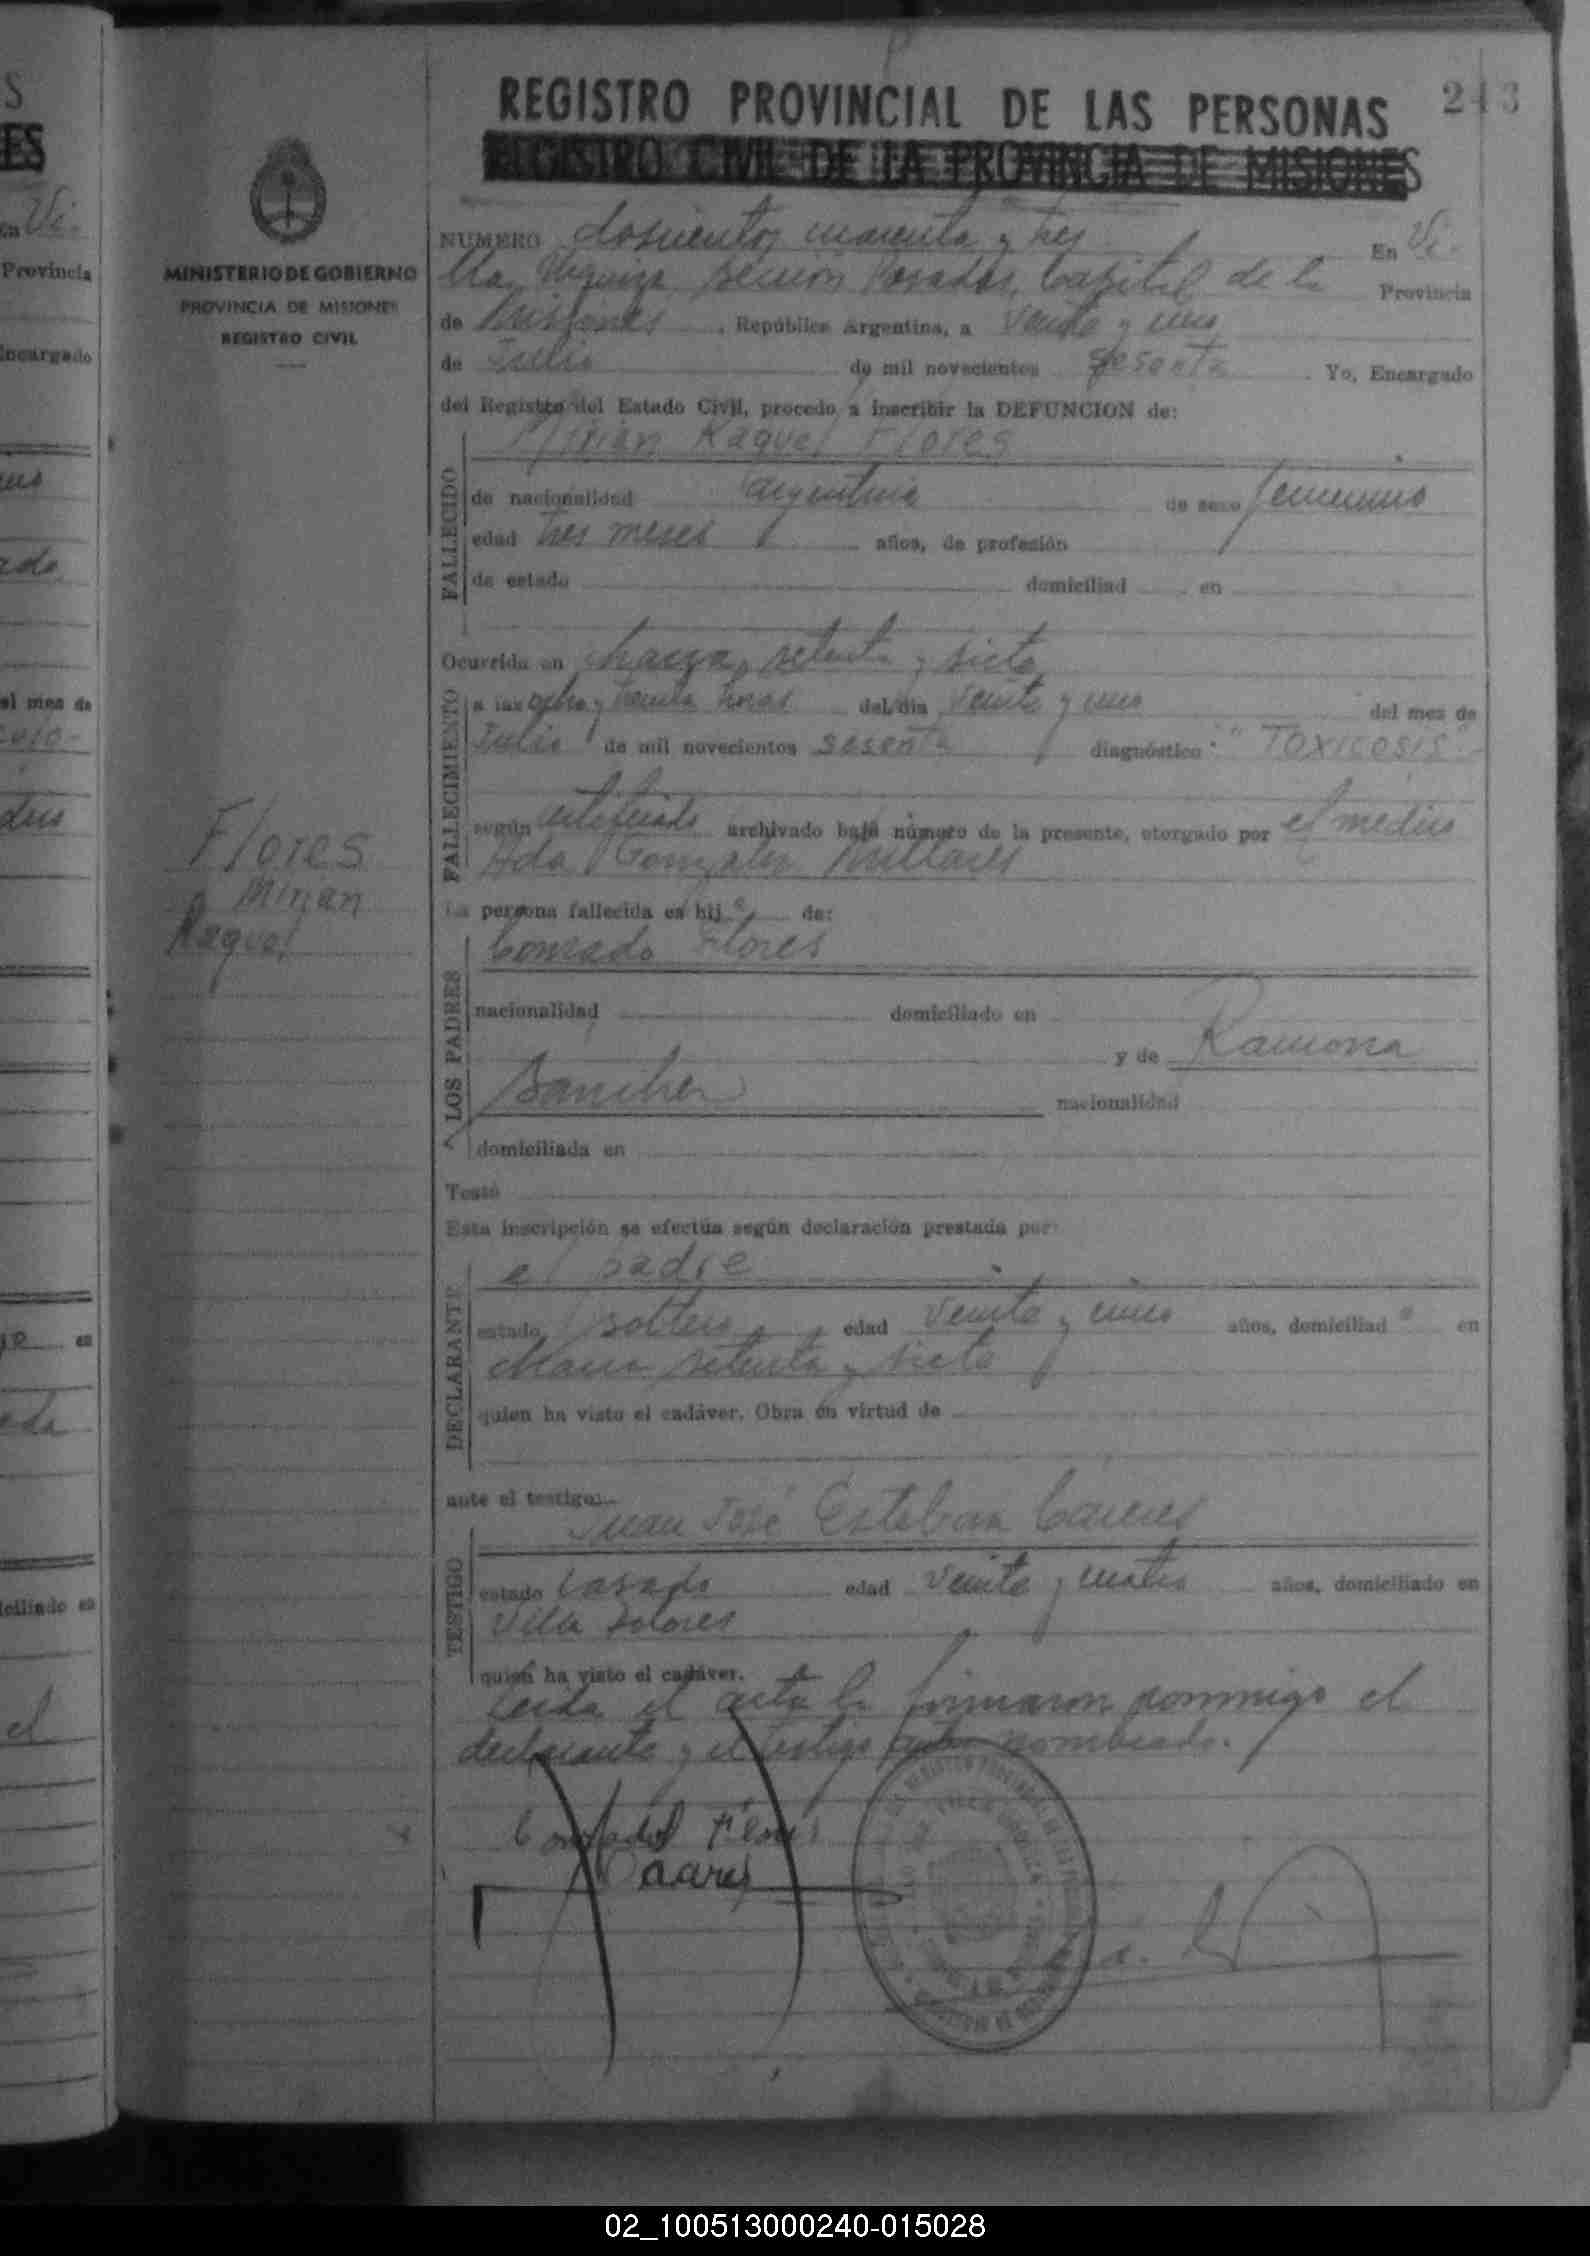 REGISTRO PROVINCIAL DE LAS PERSONAS
243
REGISTRO CIVIL DE LA PROVINCIA DE MISIONES
MINISTERIO DE GOBIERNO
PROVINCIA DE MISIONES
REGISTRO CIVIL
NUMERO dosciento cuarenta y tres En Vi-
lla Urquiza sección Posadas, Capital de la Provincia
de Misiones, República Argentina, a veinte y uno
de Julio de mil novecientos sesenta Yo, Encargado
del Registro del Estado Civil, procedo a inscribir la DEFUNCION de:
Mirian Raquel Flores
FALLECIDO
de nacionalidad argentina de sexo femenino
edad tres meses años, de profesión
de estado domiciliad en
Ocurrida en chacra setenta y siete
FALLECIMIENTO
a las ocho y treinta horas del día veinte y uno del mes de
Julio de mil novecientos sesenta diagnóstico: "TOXICOSIS"-
según certificado archivado bajo número de la presente, otorgado por el médico
Ada Gonzalez Millares
La persona fallecida es hij a de:
LOS PADRES
Conrado Flores
nacionalidad domiciliado en
y de Ramona
Sanchez nacionalidad
domiciliada en
Testó
Esta inscripción se efectúa según declaración prestada por:
DECLARANTE
el padre
estado soltero edad veinte y cinco años, domiciliad o en
chacra setenta y siete
quien ha visto el cadáver. Obra en virtud de
ante el testigo:
TESTIGO
Juan José Esteban Caceres
estado casado edad veinte y cuatro años, domiciliado en
Villa Dolores
quien ha visto el cadáver.
Leída el acta la firmaron conmigo el
declarante y el testigo antes nombrado.
Flores
Mirian
Raquel
Conrado Flores
02_100513000240-015028